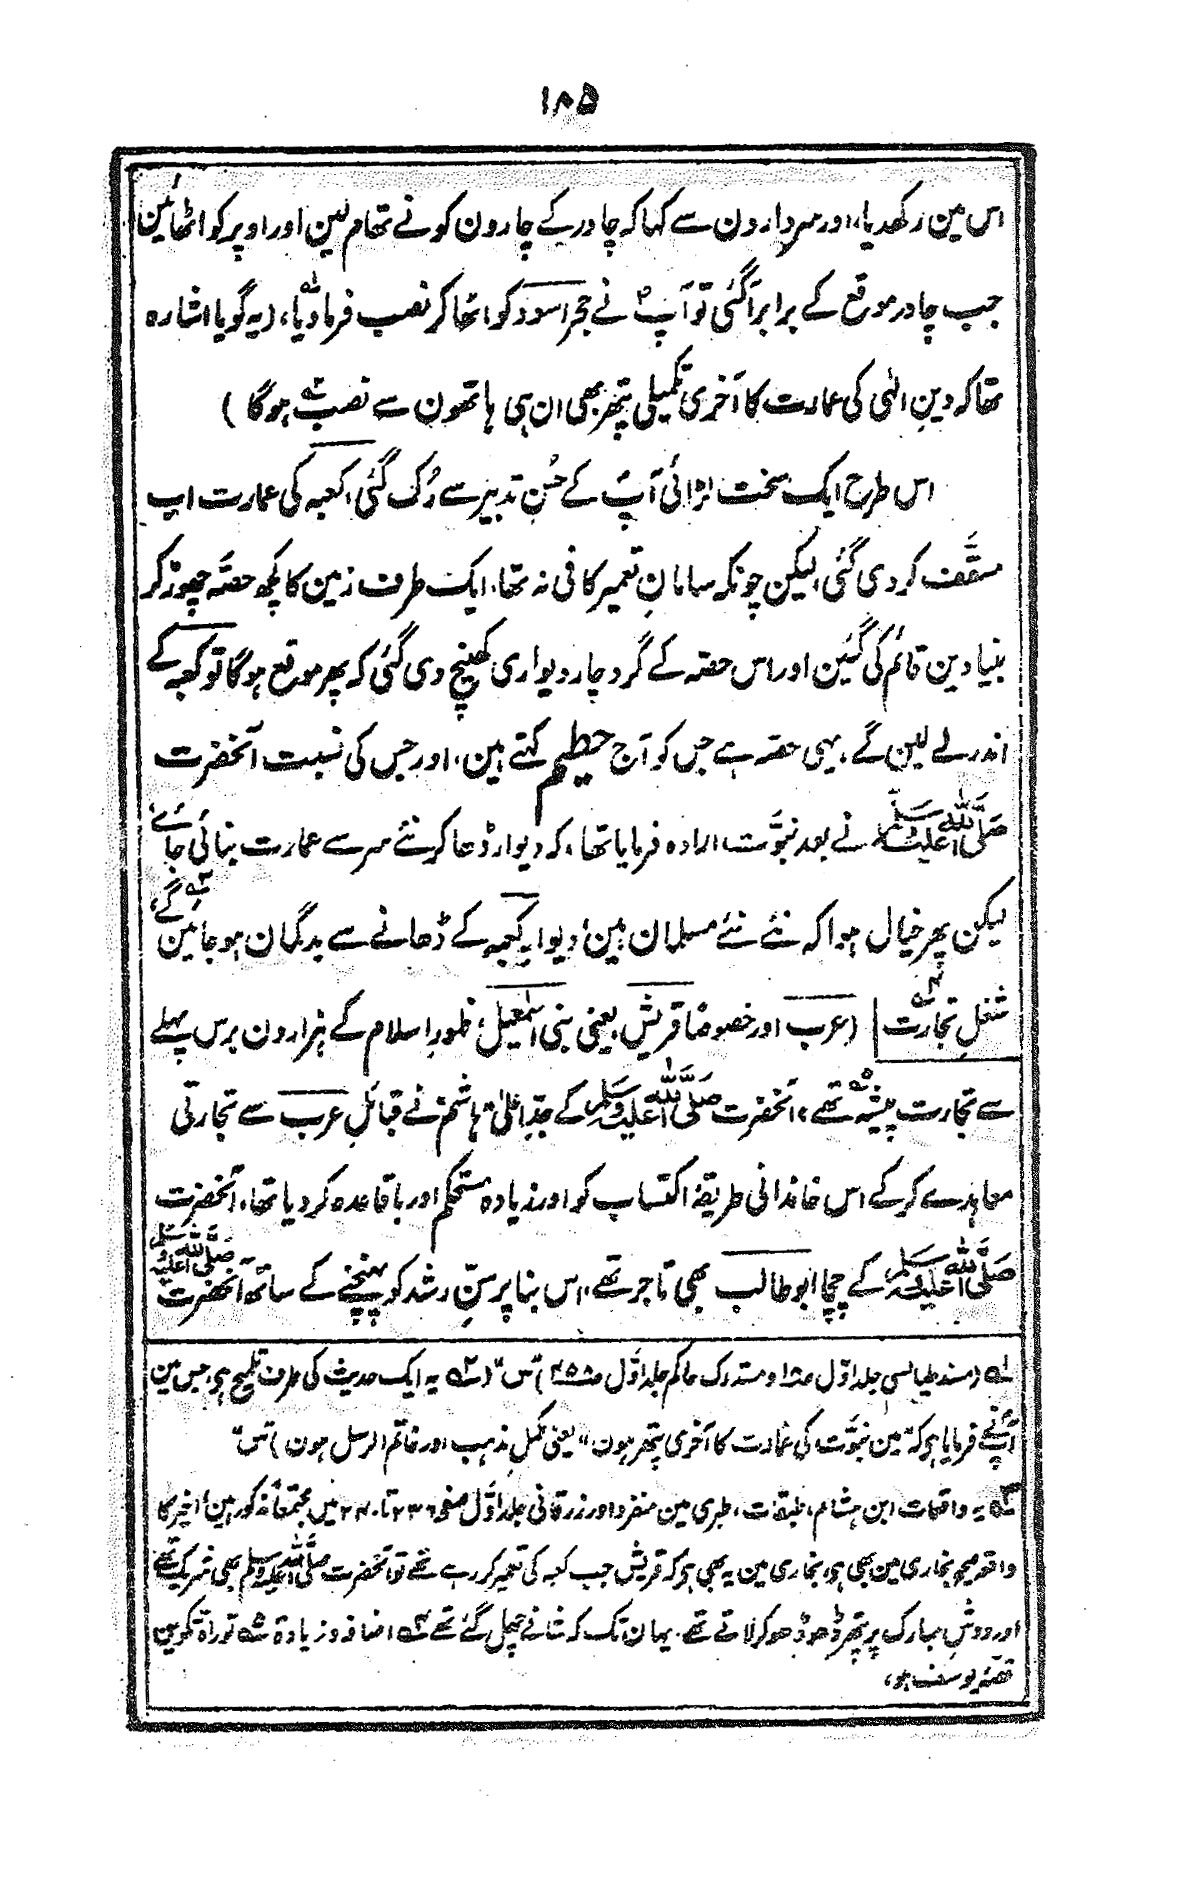 ۱۸۵
اس مین رکھدیا، اور سردارون سے کہا کہ چادر کے چارون کونے تھام لین اور اوپر کو اٹھائین
جب چادر موقع کے برابر آگئی تو آپؐ نے حجر اسود کو اٹھا کر نصب فرما دیا، (یہ گویا اشارہ
تھا کہ دینِ الٰہی کی عمارت کا آخری تکمیلی پتھر بھی ان ہی ہاتھون سے نصب ہوگا)
اس طرح ایک سخت لڑائی آپؐ کے حُسنِ تدبیر سے رُک گئی، کعبہ کی عمارت اب
مسقَّف کر دی گئی، لیکن چونکہ سامانِ تعمیر کافی نہ تھا، ایک طرف زمین کا کچھ حصّہ چھوڑ کر
بنیادین قائم کی گئین اور اس حصّہ کے گرد چار دیواری کھینچ دی گئی کہ پھر موقع ہوگا تو کعبہ کے
اندر لے لین گے، یہی حصّہ ہے جس کو آج حطیم کہتے ہین، اور جس کی نسبت آنحضرت
صَلَّی اللہ عَلَیہِ وَسلّم نے بعد نبوَّت ارادہ فرمایا تھا، کہ دیوار ڈھا کر نئے سر سے عمارت بنائی جائے
لیکن پھر خیال ہوا کہ نئے نئے مسلمان ہین، دیوارِ کعبہ کے ڈھانے سے بدگمان ہو جائین گے،
شغلِ تجارت | (عرب اور خصوصًا قریش، یعنی بنی اسمٰعیل، ظہورِ اسلام کے ہزارون برس پہلے
سے تجارت پیشہ تھے، آنحضرت صَلَّی اللہ عَلَیہِ وَسلّم کے جدِّ اعلیٰ "ہاشم" نے قبائلِ عرب سے تجارتی
معاہدے کرکے اس خاندانی طریقۂ اکتساب کو اور زیادہ مستحکم اور باقاعدہ کر دیا تھا، آنحضرت
صَلَّی اللہ عَلَیہِ وَسلّم کے چچا ابو طالب بھی تاجر تھے، اس بنا پر سنِّ رشد کو پہنچنے کے ساتھ آنحضرت صَلَّی اللہ عَلَیہِ وَسلّم
؎۱ (مسند طیالسی جلد اوّل ص۱۸ و مستدرک حاکم جلد اوّل ص۴۵۸) "س" (؎۲ یہ ایک حدیث کی طرف تلمیح ہی، جس مین
آپؐ نے فرمایا ہو کہ "مین نبوَّت کی عمارت کا آخری پتھر ہون" یعنی مکمّلِ مذہب اور خاتم الرسل ہون) "س"
؎۳ یہ واقعات ابن ہشام، طبقات، طبری مین منفرد اور زرقانی جلد اوّل صفحہ ۲۳۶ تا ۲۴۰ مین مجتمعًا مذکور ہین، اخیر کا
واقعہ صحیح بخاری مین بھی ہی، بخاری مین یہ بھی ہو کہ قریش جب کعبہ کی تعمیر کر رہے تھے تو آنحضرت صَلَّی اللہ عَلَیہِ وَسلّم بھی شریک تھے
اور دوشِ مبارک پر پتھر ڈھو ڈھو کر لاتے تھے، یہان تک کہ شانے چھل گئے تھے ؎۴ اضافہ و زیادۃ ؎۵ توراۃ تکوین
قصّۂ یوسف ہو،